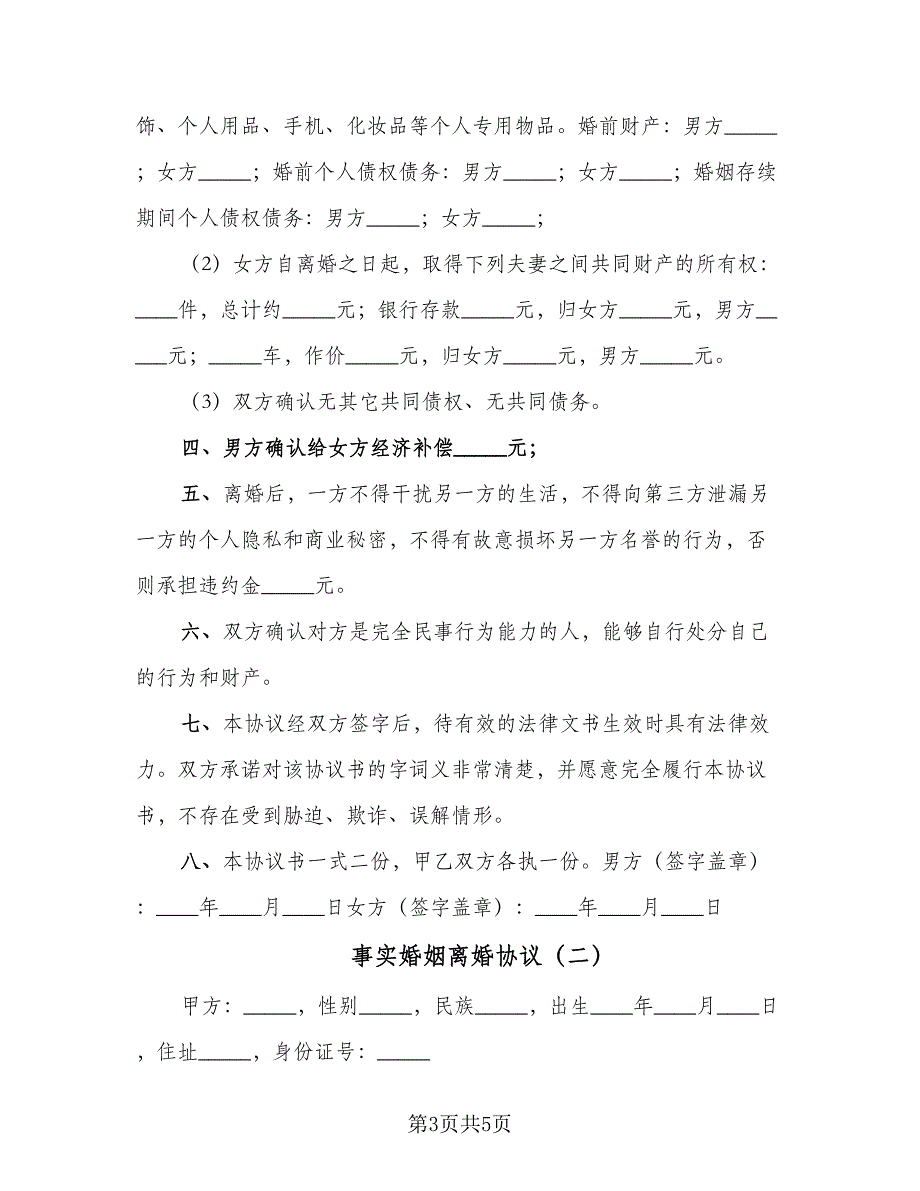 饰、个人用品、手机、化妆品等个人专用物品。婚前财产：男方_____
；女方_____；婚前个人债权债务：男方_____；女方_____；婚姻存续
期间个人债权债务：男方_____；女方_____；
（2）女方自离婚之日起，取得下列夫妻之间共同财产的所有权：
____件，总计约_____元；银行存款_____元，归女方_____元，男方__
___元；_____车，作价_____元，归女方_____元，男方_____元。
（3）双方确认无其它共同债权、无共同债务。
四、男方确认给女方经济补偿_____元；
五、离婚后，一方不得干扰另一方的生活，不得向第三方泄漏另
一方的个人隐私和商业秘密，不得有故意损坏另一方名誉的行为，否
则承担违约金_____元。
六、双方确认对方是完全民事行为能力的人，能够自行处分自己
的行为和财产。
七、本协议经双方签字后，待有效的法律文书生效时具有法律效
力。双方承诺对该协议书的字词义非常清楚，并愿意完全履行本协议
书，不存在受到胁迫、欺诈、误解情形。
八、本协议书一式二份，甲乙双方各执一份。男方（签字盖章）
：____年____月____日女方（签字盖章）：____年____月____日
事实婚姻离婚协议（二）
甲方：_____，性别_____，民族_____，出生____年____月____日
，住址_____，身份证号：_____
第3页共5页